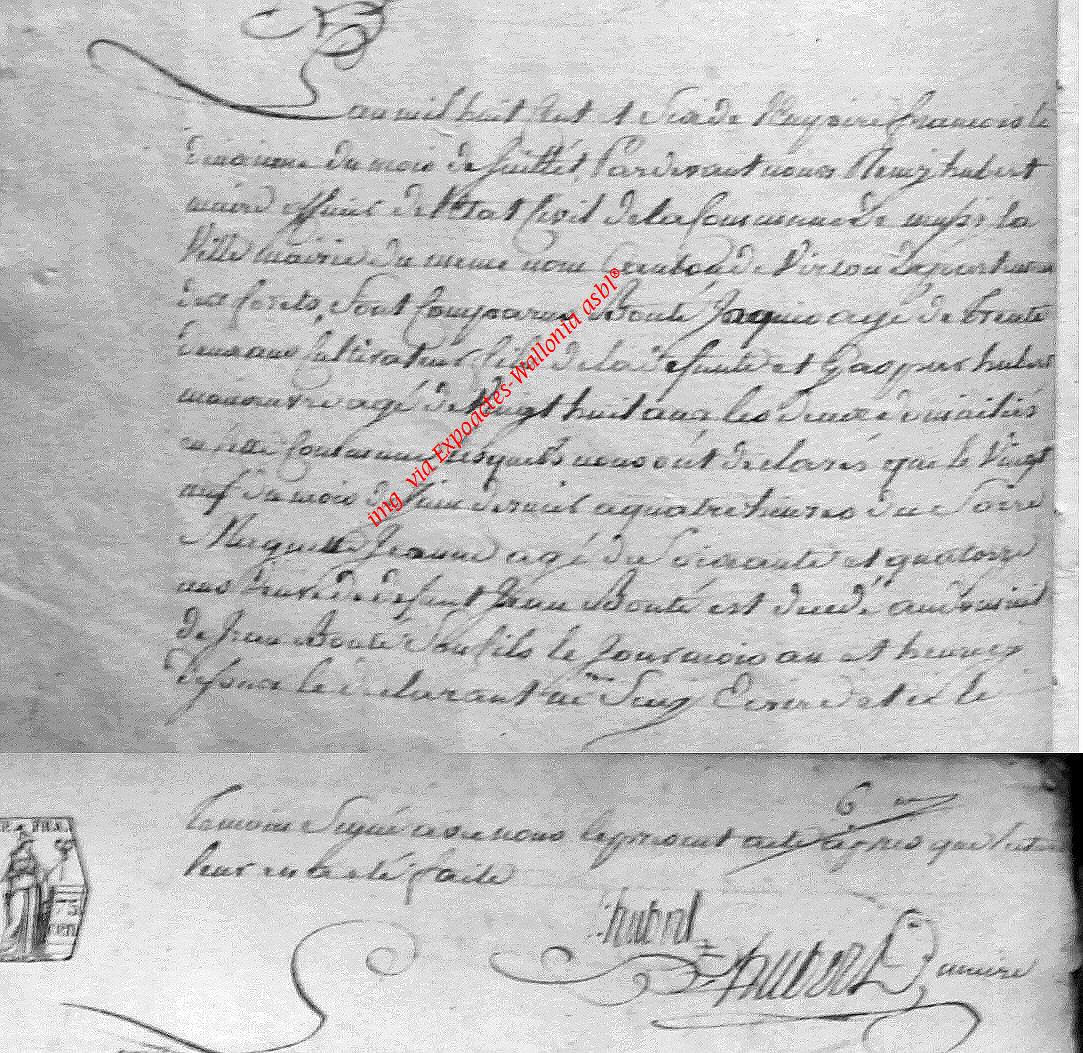 an mil huit cent et six de l'empire francois le
du mois de juillet, Pardevant nous Remy hubert
maire officier de l'Etat Civil de la Commune de mussy la
Ville mairie du meme nom Canton de Virton Departement
des forets, sont Comparus Bonté Jaques agé de trente
deux ans Cultivateur fils de la defunte et Gaspard hubert
manouvre agé de vingt huit ans les deux domiciliés
en cette Commune lesquels nous ont declarés que le vingt
neuf du mois de juin dernier a quatre heures du Soire
Jeanne agé de soixante et quatorze
ans veuve de defunt Jean Bonté est decedé au domicil
de Jean Bonté son fils le jour mois an et heures
desous le declarant ne Seay Ecrire et le
img via Expoactes-Wallonia asbl®
6
temoin Signé avec nous le present acte apres que lecture
leur en a eté faite
75
hubert
hubert maire